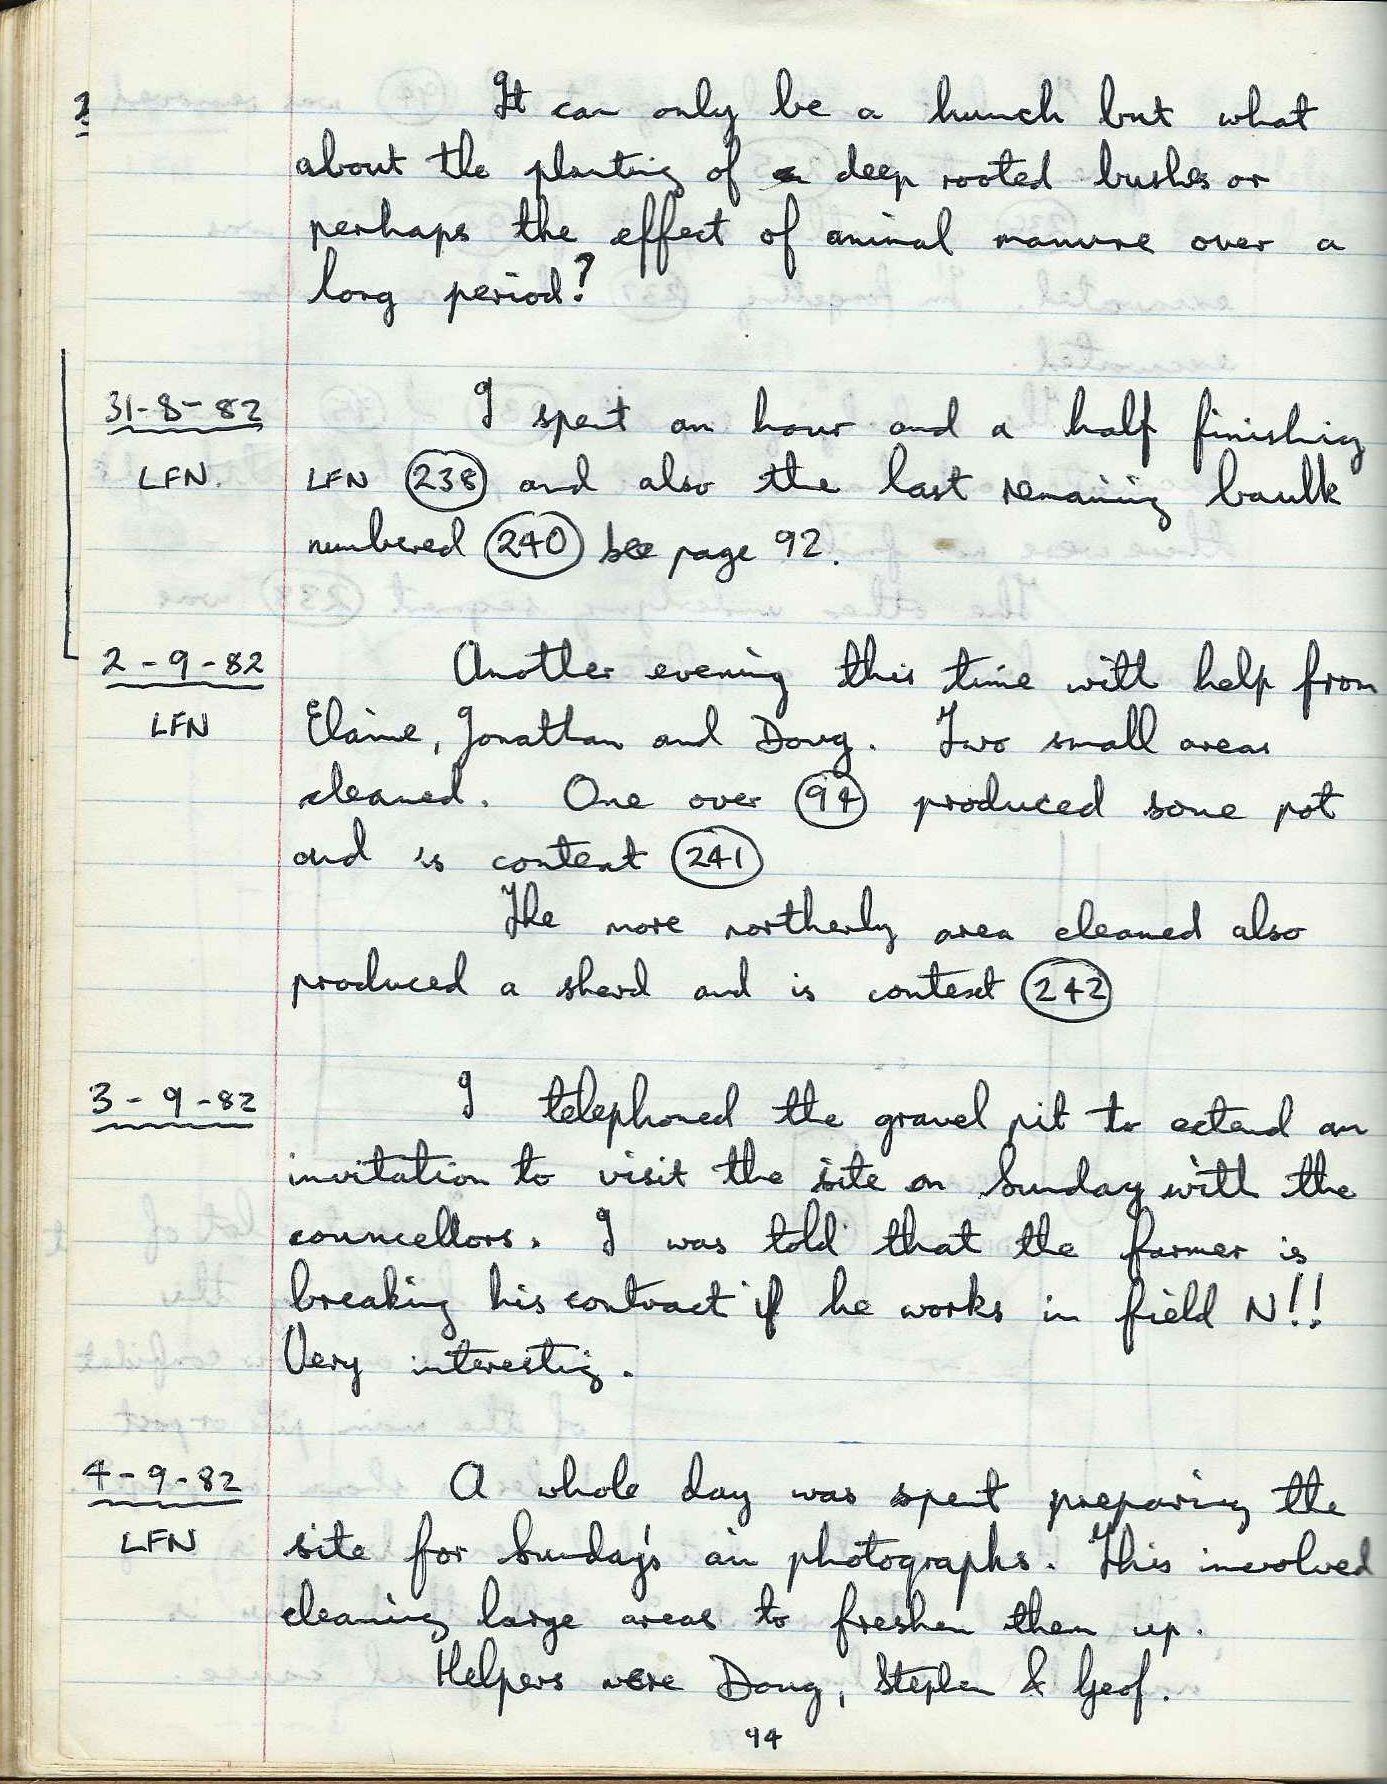 ? It can only be a hunch but what
about the planting of a deep rooted bushes or
perhaps the effect of animal manure over a
long period?
31-8-82 I spent an hour and a half finishing
LFN. LFN 238 and also the last remaining baulk
numbered 240 see page 92.
2-9-82 Another evening this time with help from
LFN Elaine, Jonathan and Doug. Two small areas
cleaned. One over 94 produced some pot
and is context 241
The more northerly area cleaned also
produced a sherd and is context 242
3-9-82 I telephoned the gravel pit to extend an
invitation to visit the site on Sunday with the
councellors. I was told that the farmer is
breaking his contract if he works in field N!!
Very interesting.
4-9-82 A whole day was spent preparing the
LFN site for Sunday's air photographs. This involved
cleaning large areas to freshen them up.
Helpers were Doug, Stephen & Geof.
94